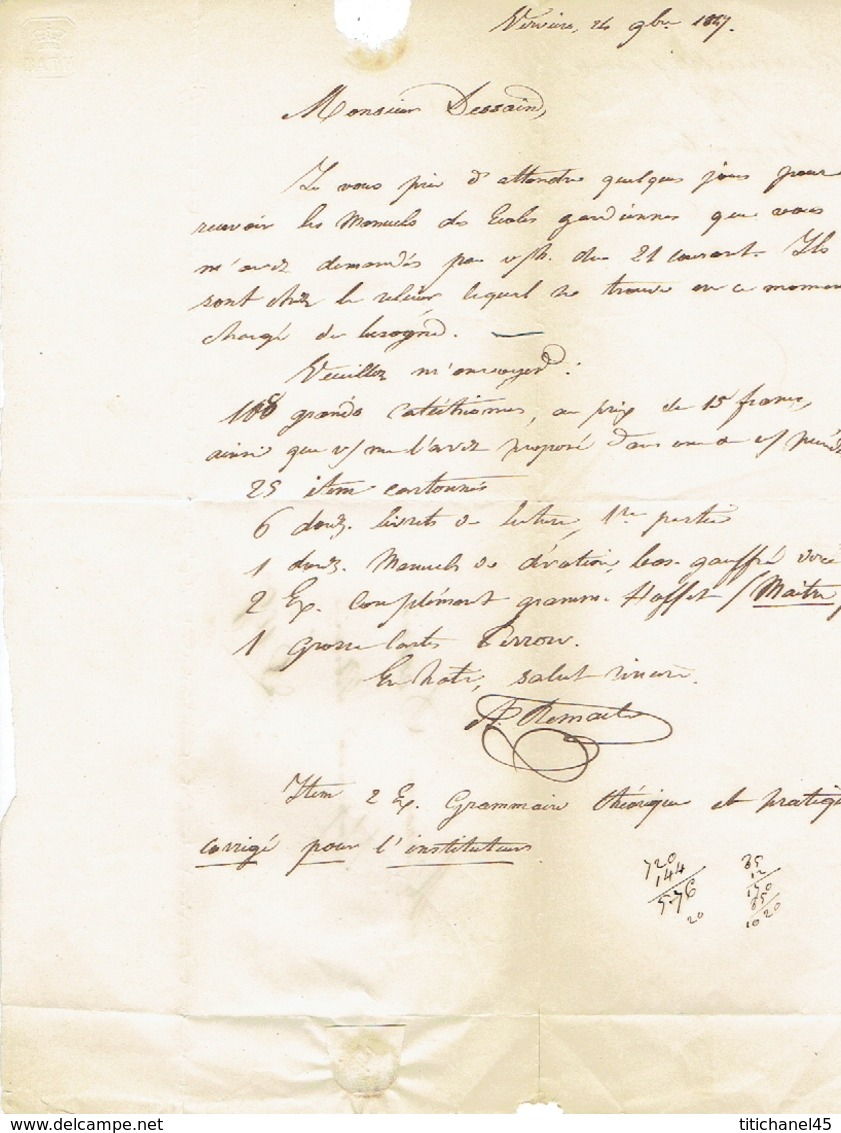 Verviers, 24 9bre 1847.
Monsieur Dessain,
Je vous prie d'attendre quelques jours pour
recevoir les Manuels des Ecoles gardiennes que vous
m'avez demandés par v/h. du 21 courant. Ils
sont chez le relieur lequel se trouve en ce momen
chargé de besogne.
Veuillez m'envoyer :
100 grands catéchismes, au prix de 15 francs,
ainsi que v/ me l'avez proposé dans une de v/
25 item cartonnés
6 douz. livrets de lecture, 1re partie
1 douz. Manuels de dévotion, bas. gauffré
2 Ex. complément gramm. Haffet / Maître /
1 Grosse cartes
En hate, salut sincère.
Item 2 Ex. Grammaire théorique et pratiq
corrigé pour l'instituteur
720
144
576
20
85
12
170
85
10 20
DELCAMPE
titichanel45